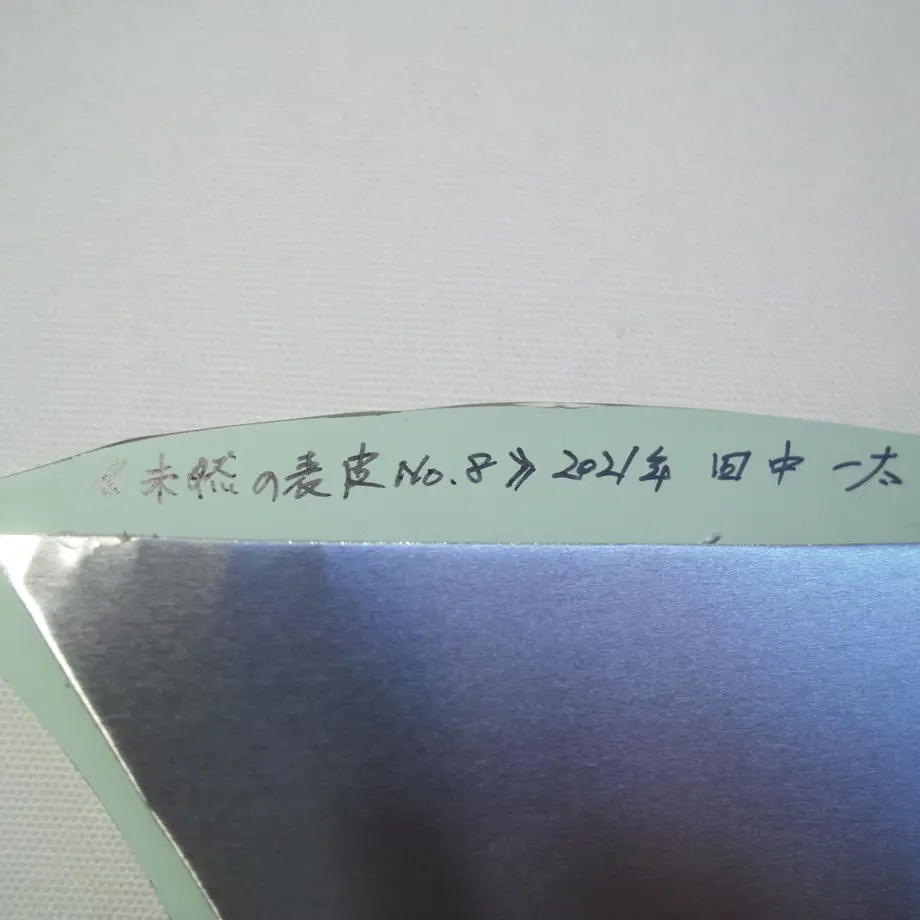 《未然の表皮No.8》2021年 田中 一太